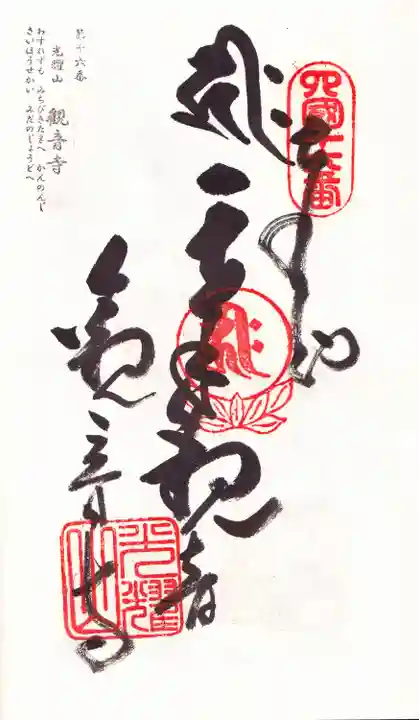 四國十六番
奉納
千手観音
観音寺
光耀山
第十六番
光耀山
觀音寺
わすれずも みちびきたまへ かんのんじ
さいほうせかい みだのじょうどへ